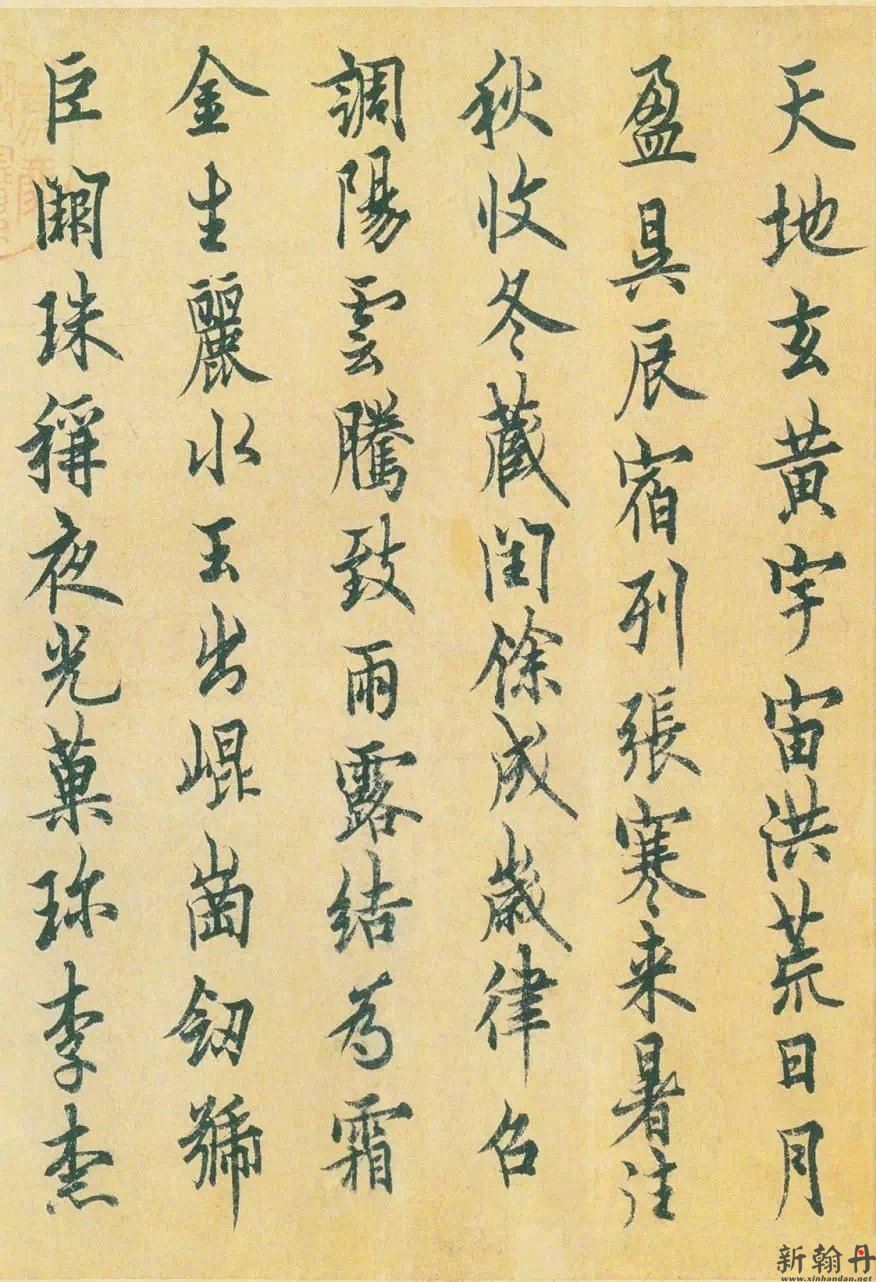 天地玄黃宇宙洪荒日月
盈昃辰宿列張寒来暑往
秋收冬藏閏餘成歲律召
調陽雲騰致雨露結為霜
金生麗水玉出崐崗劒號
巨闕珠稱夜光菓珎李柰
新翰丹
www.xinhandan.net